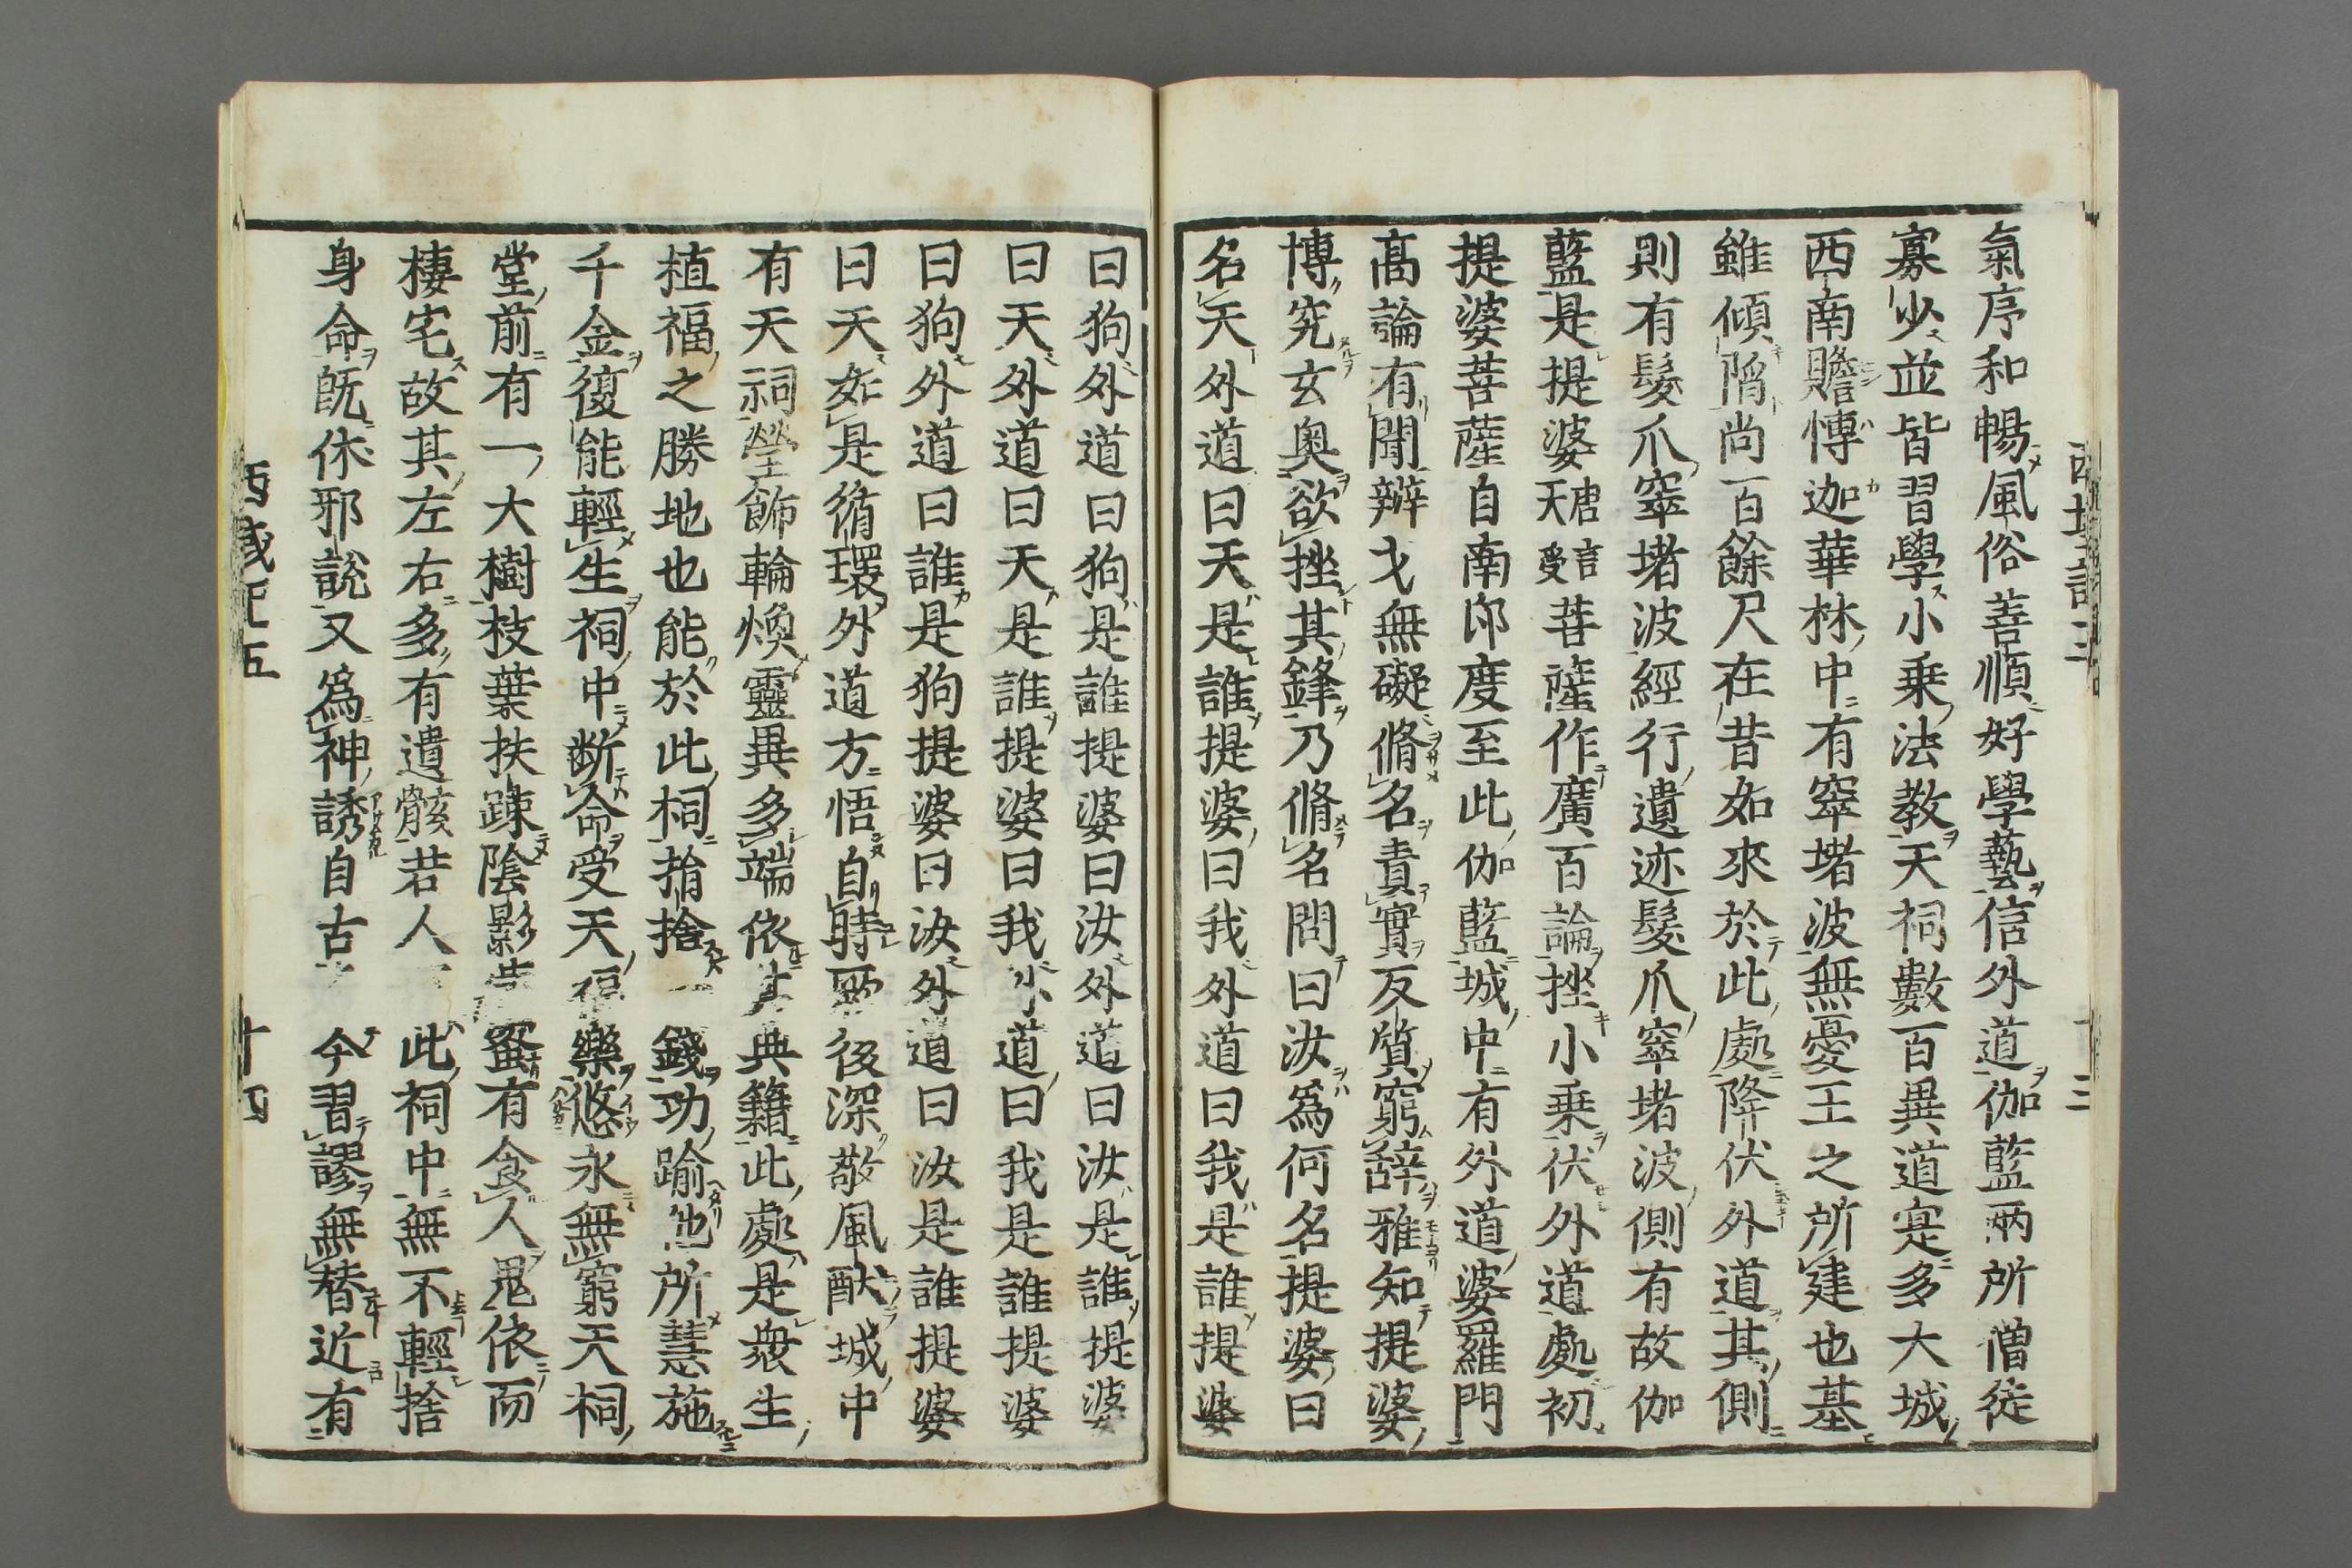 氣序和暢風俗善順好學藝信外道伽藍兩所僧徒
寡少並皆習學小乗法教天祠數百異道寔多大城
西南瞻愽迦華林中有窣堵波無憂王之所建也基
雖傾陷尚百餘尺在昔如來於此處降伏外道其側
則有髮爪窣堵波經行遺迹髮爪窣堵波側有故伽
藍是提婆唐言天受菩薩作廣百論挫小乗伏外道處初
提婆菩薩自南印度至此伽藍城中有外道婆羅門
髙論有聞辨才無礙循名責實反質窮辞雅知提婆
博究玄奥欲挫其鋒乃循名問曰汝爲何名提婆曰
名天外道曰天是誰提婆曰我外道曰我是誰提婆
曰狗外道曰狗是誰提婆曰汝外道曰汝是誰提婆
曰天外道曰天是誰提婆曰我外道曰我是誰提婆
曰狗外道曰誰是狗提婆曰汝外道曰汝是誰提婆
曰天如是循環外道方悟自時厥後深敬風猷城中
有天祠瑩飾輪煥靈異多端依其典籍此處是衆生
植福之勝地也能於此祠捐捨一錢功踰他所惠施
千金復能輕生祠中断命受天福樂悠永無窮天祠
堂前有一大樹枝葉扶踈陰影蒙蜜有食人鬼依而
棲宅故其左右多有遺骸若人此祠中無不輕捨
身命旣休邪説又爲神誘自古今習謬無替近有
西域記五
十四